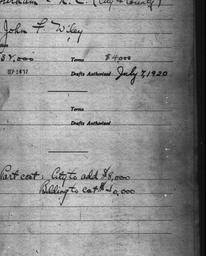 Durham - N.C. (City & County)
John F. Wiley
$8,000 Terms $4000
SEP 26 17 Drafts Authorized July 7, 1920
Terms
Drafts Authorized
Part cost: City to add $8,000
Building to cost $40,000